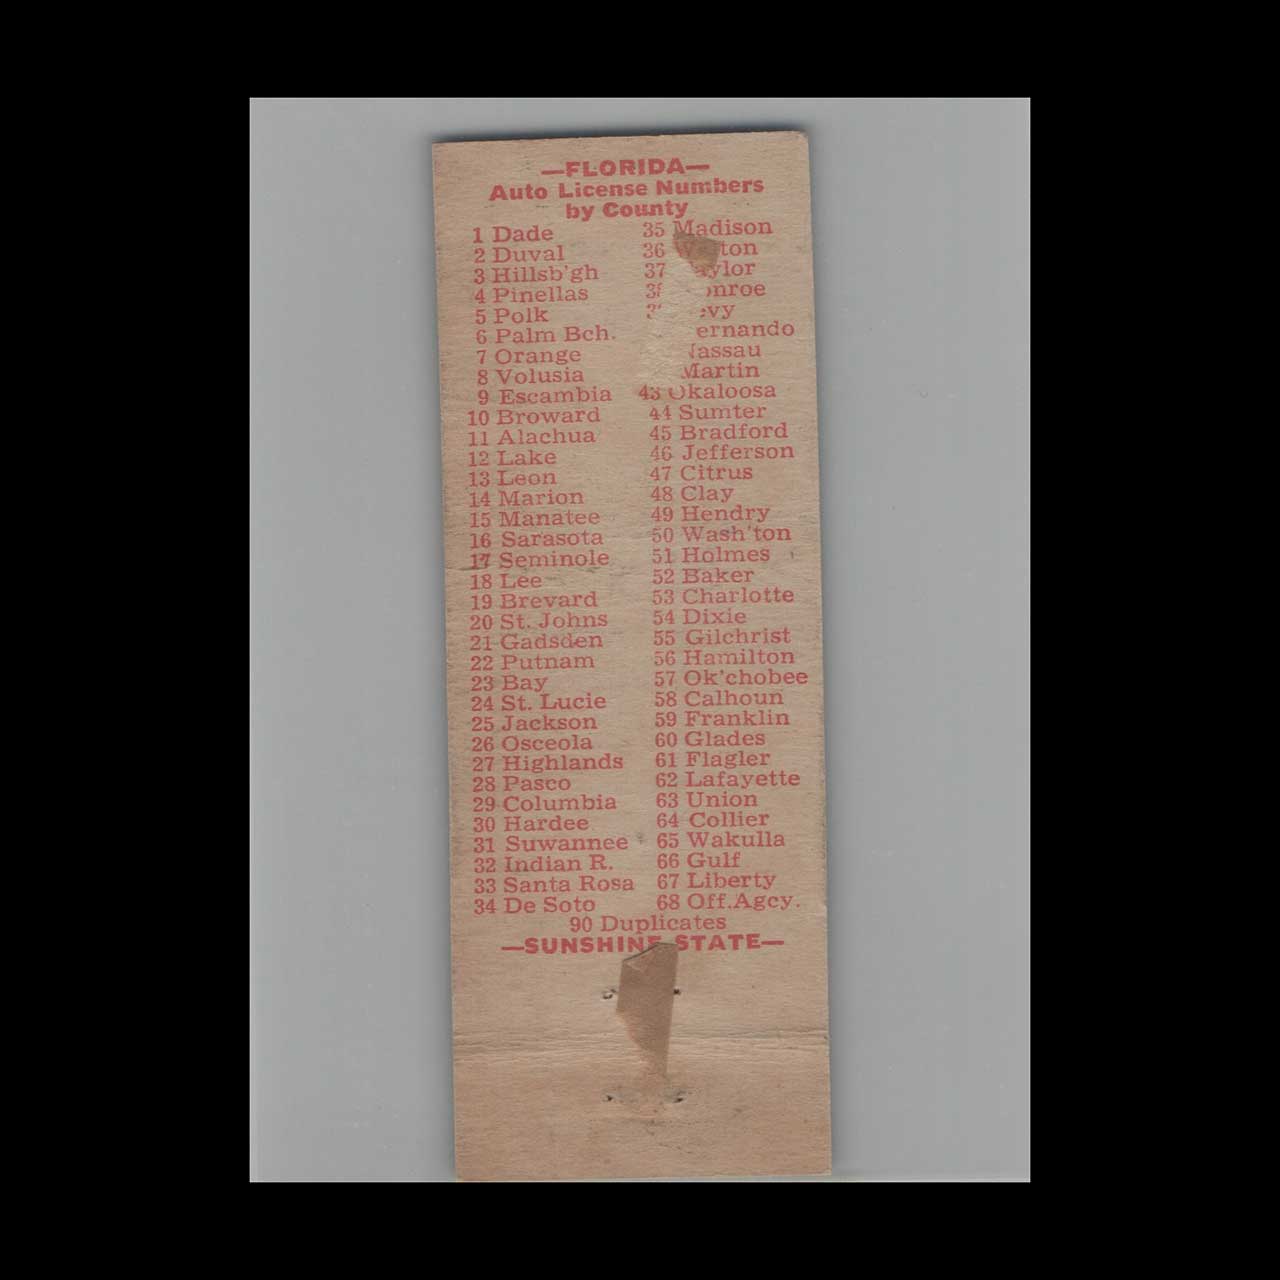 —FLORIDA—
Auto License Numbers
by County
1 Dade
2 Duval
3 Hillsb'gh
4 Pinellas
5 Polk
6 Palm Bch.
7 Orange
8 Volusia
9 Escambia
10 Broward
11 Alachua
12 Lake
13 Leon
14 Marion
15 Manatee
16 Sarasota
17 Seminole
18 Lee
19 Brevard
20 St. Johns
21 Gadsden
22 Putnam
23 Bay
24 St. Lucie
25 Jackson
26 Osceola
27 Highlands
28 Pasco
29 Columbia
30 Hardee
31 Suwannee
32 Indian R.
33 Santa Rosa
34 De Soto
35 Madison
36
37
43 Okaloosa
Martin
44 Sumter
45 Bradford
46 Jefferson
47 Citrus
48 Clay
49 Hendry
50 Wash'ton
51 Holmes
52 Baker
53 Charlotte
54 Dixie
55 Gilchrist
56 Hamilton
57 Ok'chobee
58 Calhoun
59 Franklin
60 Glades
61 Flagler
62 Lafayette
63 Union
64 Collier
65 Wakulla
66 Gulf
67 Liberty
68 Off.Agcy.
90 Duplicates
—SUNSHINE STATE—